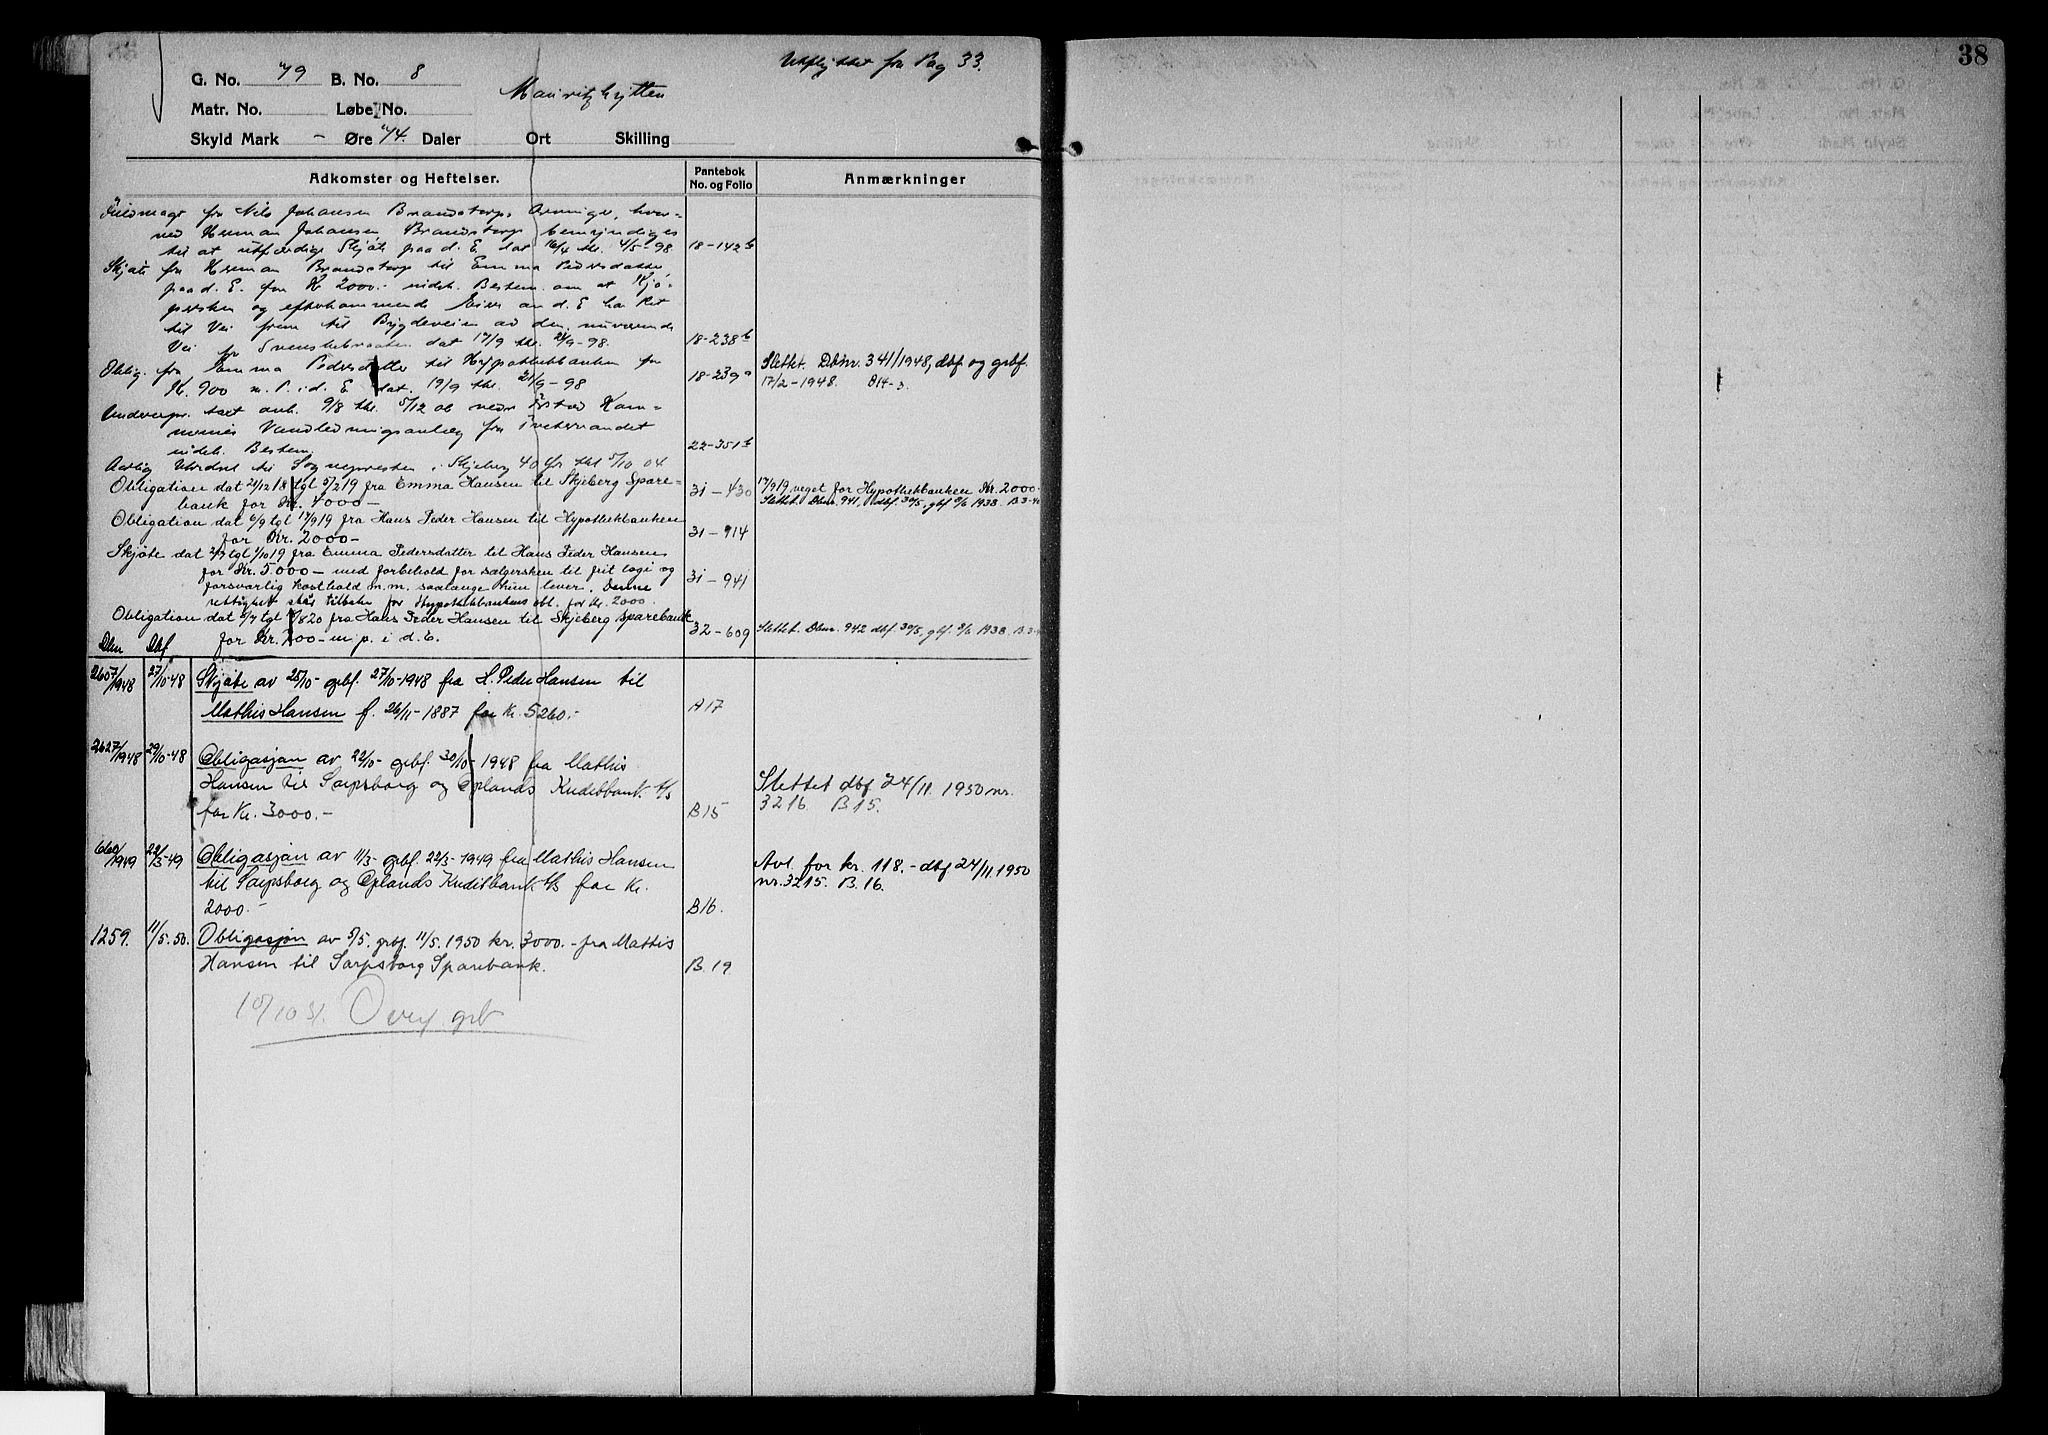 38
Utflyttet fra Pag 33.
G. No. 49 B. No. 8
Mauritzhytten
Matr. No. Løbe No.
Skyld Mark - Øre 44. Daler Ort Skilling
Adkomster og Heftelser.
Pantebok No. og Folio
Anmærkninger
fra Nils Johansen Brandstorps Arvinger, hvor-
ved Herman Johansen Brandstorp bemyndiges
til at utfærdige Skjøte paa d. E. dat 16/4 thl. 4/5-98 18-142b
Skjøte fra Herman Brandstorp til Emma Pedersdatter
paa d. E. for Kr 2000.- indeh. Bestem. om at Kjø-
persken og efterkommende Eiere av d. E har Ret
til Vei frem til Bygdeveien ad den nuværende
Vei fra Svenskebraaten dat 17/9 thl. 21/9-98. 18-238b
Oblig. fra Emma Pedersdatter til Hypothekbanken for
K. 900 m. P. i d. E dat. 19/9 thl. 21/9-98 18-239a
Slettet. Dbnr. 341/1948, dbf og grbf.
17/2-1948. B14-3.
Underexpr. taxt anh. 9/8 thl. 5/12 06 vedr
Vandledningsanlæg fra Tvetervandet
indeh. Bestem. 22-351b
Aarlig Utrdsel til Sognepresten i Skjeberg 40 ør thl 5/10 04
Obligation dat 21/12 18 tgl 5/2 19 fra Emma Hansen til Skjeberg Spare-
bank for Kr. 4000- 31-430
17/9 19 veget for Hypothekbanken Kr. 2000-
Slettet. Dbnr. 941, dbf. 30/5, gbf 2/6 1938. B 3-4
Obligation dat 6/9 tgl 17/9 19 fra Hans Peder Hansen til Hypothekbanken
for Kr. 2000- 31-914
Skjøte dat 2/9 tgl 1/10 19 fra Emma Pedersdatter til Hans Peder Hansen
for Kr. 5000- med forbehold for sælgersken til frit logi og
forsvarlig kosthold m.m. saalænge hun lever. Denne
rettighet staar tilbake for Hypothekbankens obl. for Kr. 2000. 31-941
Obligation dat 6/7 tgl 6/8 20 fra Hans Peder Hansen til Skjeberg Sparebank
for Kr. 700- m. p. i d. E. 32-609
Slettet. Dbnr. 942 dbf. 30/5, gbf. 2/6 1938. B 3-4
Dbnr Dbf
2607/1948 27/10-48 Skjøte av 25/10- grbf. 27/10-1948 fra H. Peder Hansen til
Mathis Hansen f. 26/11-1887 for Kr. 5260.- A17
2627/1948 29/10-48 Obligasjon av 20/10- grbf. 30/10-1948 fra Mathis
Hansen til Sarpsborg og Oplands Kreditbank A/S
for Kr. 3000.- B15
Slettet dbf 24/11. 1950 nr.
3216. B.15.
660/1949 22/3-49 Obligasjon av 11/3- grbf. 22/3-1949 fra Mathis Hansen
til Sarpsborg og Oplands Kreditbank A/S for Kr.
2000.- B16.
Avl. for kr. 118.- dbf 24/11.1950
nr. 3215. B. 16.
1259. 11/5.50. Obligasjon av 5/5. grbf. 11/5. 1950 kr. 3000.- fra Mattis
Hansen til Sarpsborg Sparebank. B. 19
10/10 51. Overf grb